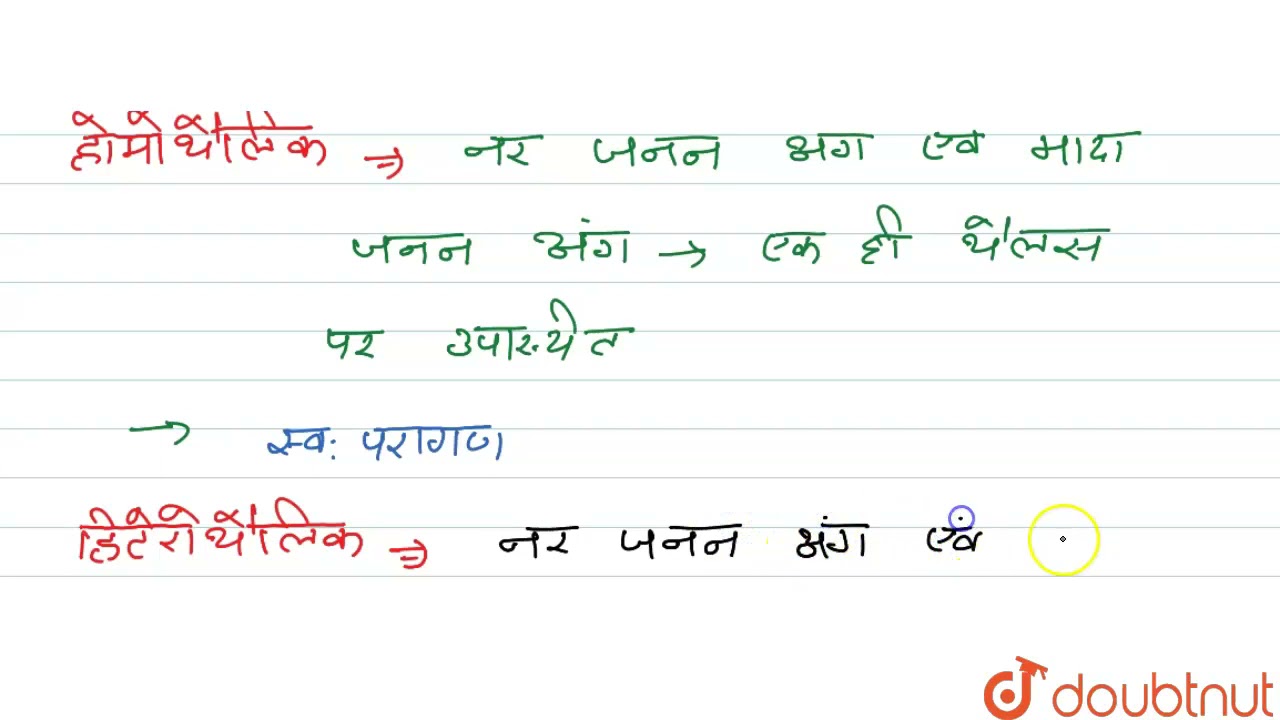 होमोथैलिक ⇒ नर जनन अंग एवं मादा
जनन अंग → एक ही थैलस
पर उपस्थित
→ स्व: परागण
हिटेरोथैलिक ⇒ नर जनन अंग एवं
doubtnut